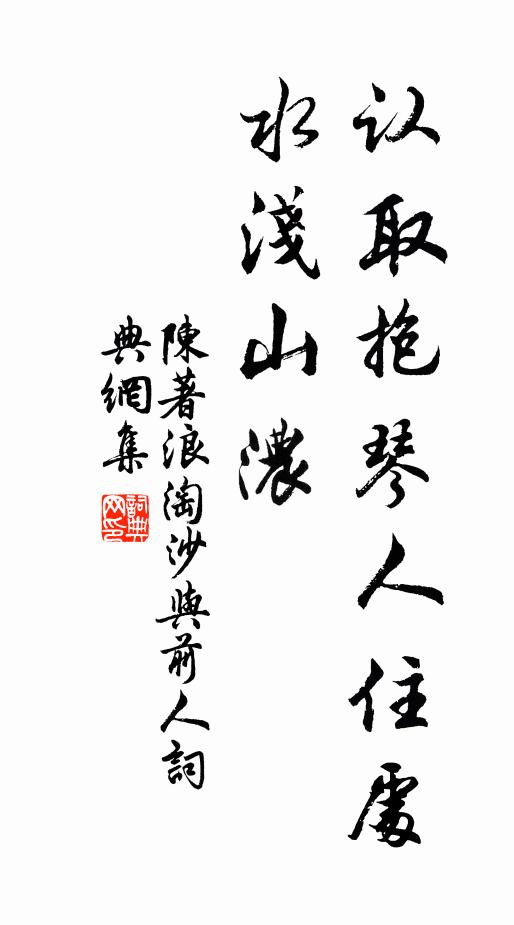 认取抱琴人住處
水淺山濃
陳著浪淘沙與前人詞
典網集
詞典网印